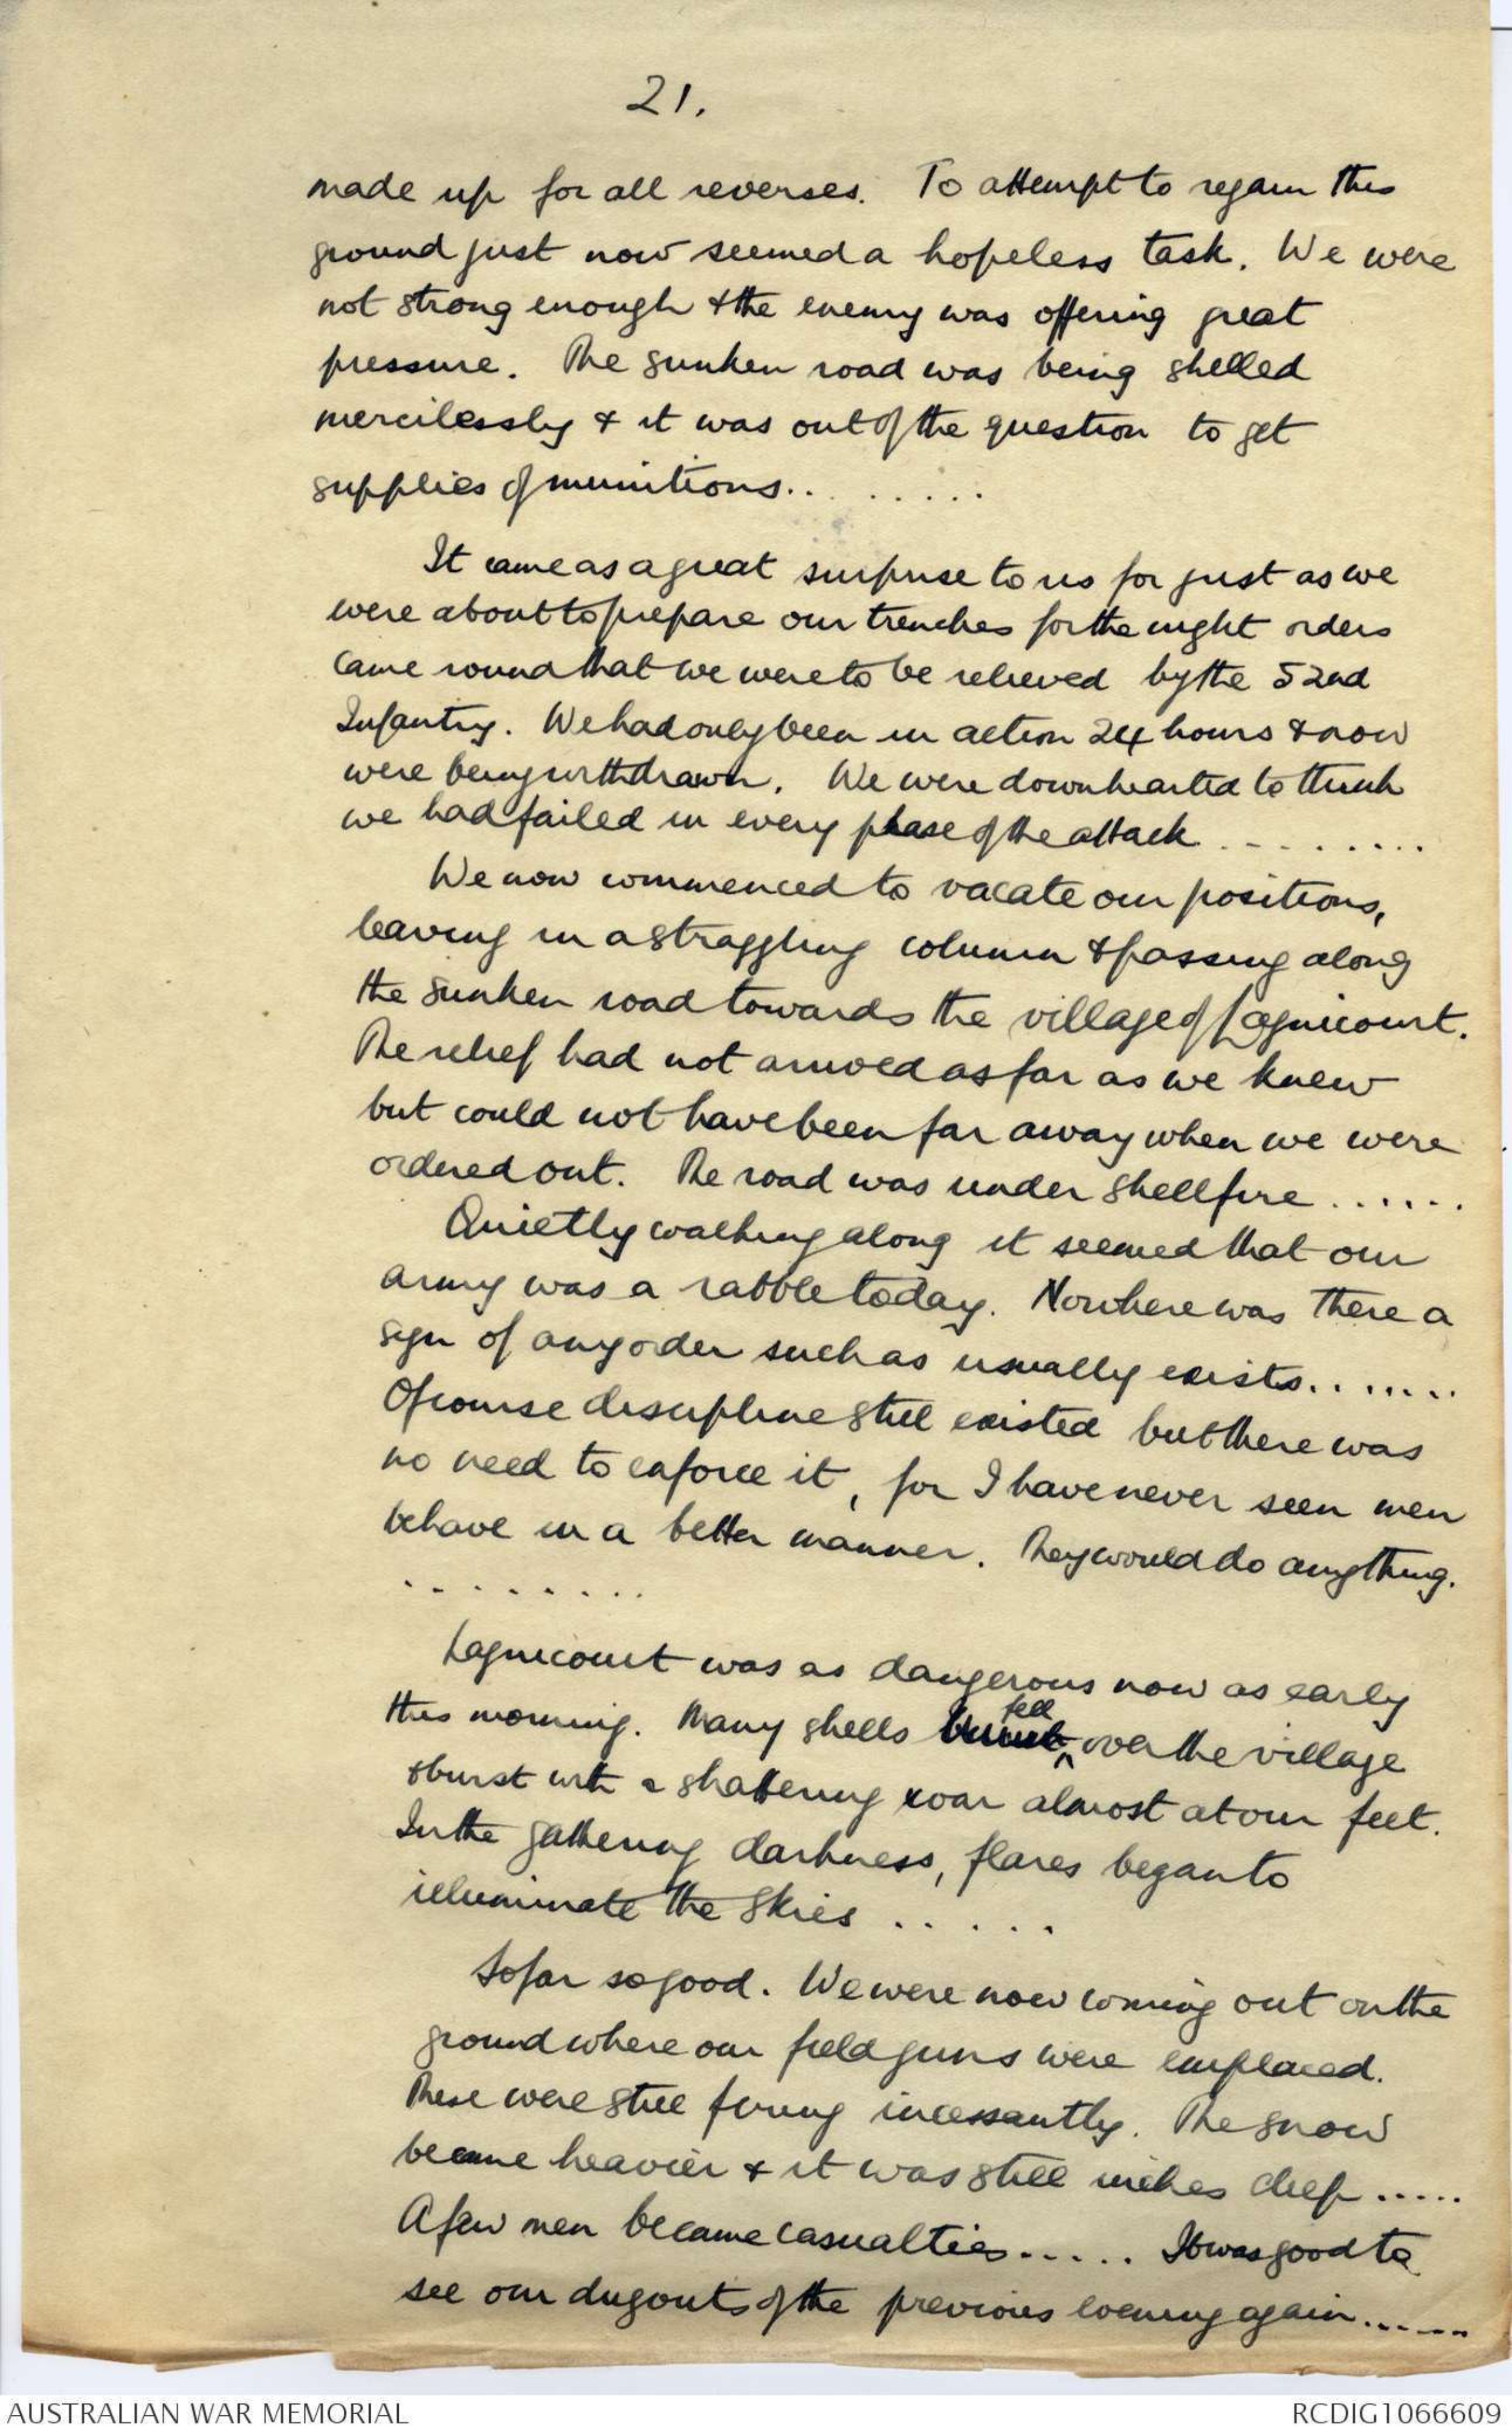 21.
made up for all reverses. To attempt to regain this
ground just now seemed a hopeless task. We were
not strong enough & the enemy was offering great
pressure. The sunken road was being shelled
mercilessly & it was out of the question to get
supplies of munitions.. . . . . .
It came as a great surprise to us for just as we
were about to prepare our trenches for the night orders
came round that we were to be relieved by the 52nd
Infantry. We had only been in action 24 hours & now
were being withdrawn. We were downhearted to think
we had failed in every phase of the attack . . . . . . . .
We now commenced to vacate our positions,
leaving in a straggling column & passing along
the sunken road towards the village of Lagnicourt.
The relief had not arrived as far as we knew
but could not have been far away when we were
ordered out. The road was under shellfire ......
Quietly walking along it seemed that our
army was a rabble today. Nowhere was there a
sign of any order such as usually exists.......
Of course discipline still existed but there was
no need to enforce it, for I have never seen men
behave in a better manner. They would do anything.
. . . . . . . . .
Lagnicourt was as dangerous now as early
this morning. Many shells burst fell over the village
& burst with a shattering roar almost at our feet.
In the gathering darkness, flares began to
illuminate the skies . . . . .
So far so good. We were now coming out on the
ground where our field guns were emplaced.
These were still firing incessantly. The snow
became heavier & it was still inches deep .....
A few men became casualties..... It was good to
see our dugouts of the previous evening again......
AUSTRALIAN WAR MEMORIAL
RCDIG1066609